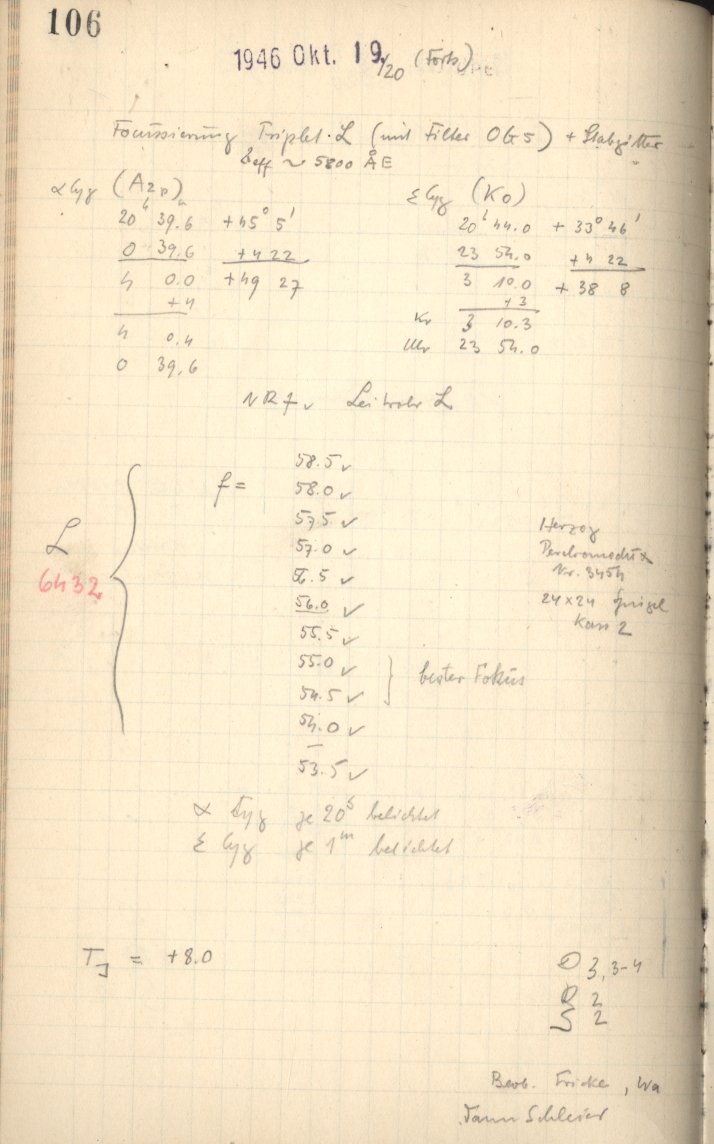 106
1946 Okt. 19/20 (Forts.)
Focussierung Triplet L (mit Filter OG5) + Stabgitter
λeff ~ 5800 ÅE
α Cyg (A2p)
20h 39.6 +45° 5'
0 39.6 +4 22
4 0.0 +49 27
+4
4 0.4
0 39.6
ε Cyg (K0)
20h 44.0 +33° 46'
23 54.0 +4 22
3 10.0 +38 8
+3
Kr 3 10.3
Uhr 23 54.0
NR f ✓ Leitrohr L
f =
58.5 ✓
58.0 ✓
57.5 ✓
57.0 ✓
56.5 ✓
56.0 ✓
55.5 ✓
55.0 ✓
54.5 ✓
54.0 ✓
53.5 ✓
bester Fokus
L
6432
Herzog
Nr. 3454
24×24
α Cyg je 20s belichtet
ε Cyg je 1m belichtet
TJ = +8.0
3, 3-4
2
S 2
Beob. Fricke, Wa